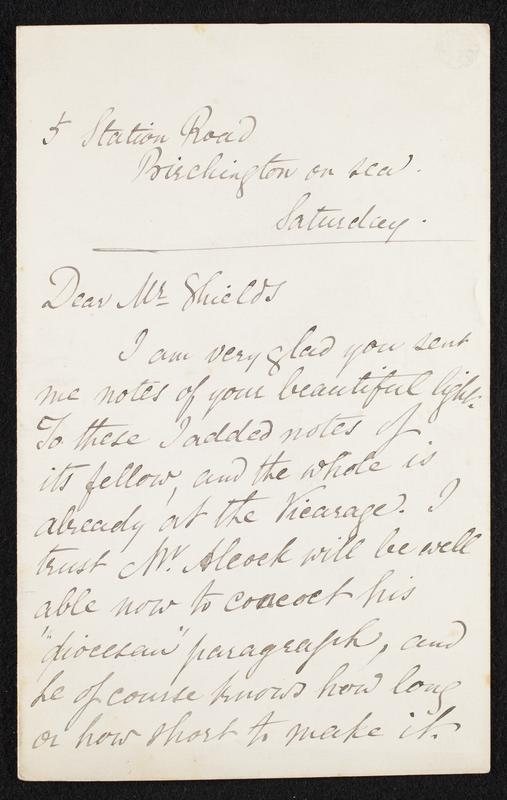 5 Station Road
Birchington on sea.
Saturday.
Dear Mr. Shields
I am very glad you sent
me notes of your beautiful light.
To these I added notes of
its fellow, and the whole is
already at the Vicarage. I
trust Mr. Alcock will be well
able now to concoct his
"diocesan" paragraph, and
he of course knows how long
or how short to make it.